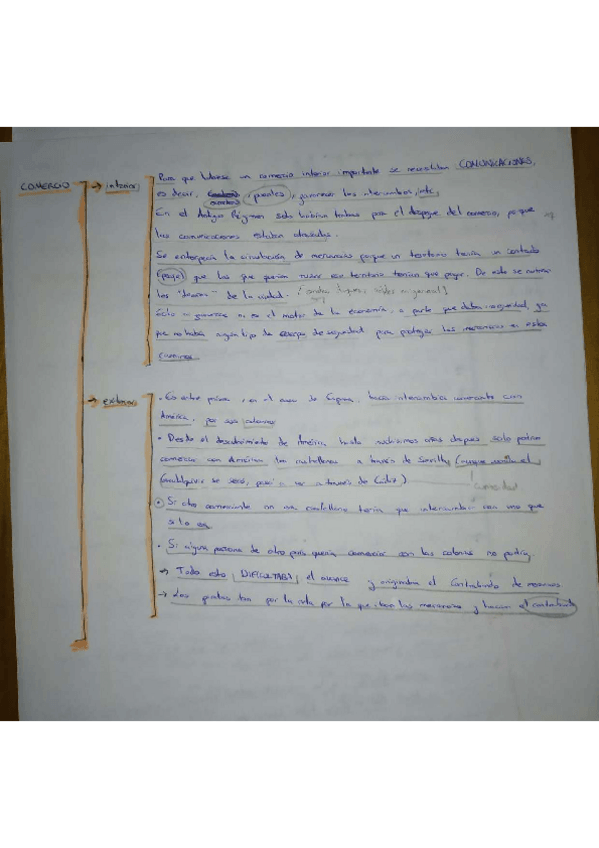 COMERCIO → interior
Para que hubiese un comercio interior importante se necesitaban COMUNICACIONES,
es decir, puentes, favorecer los intercambios,
En el Antiguo Régimen solo habían trabas para el despegue del comercio, porque
las comunicaciones estaban atrasadas.
Se entorpecía la circulación de mercancías porque un territorio tenía un
(peaje) que los que querían cruzar ese territorio tenían que pagar. De esto se
los de la ciudad.
no es el motor de la economía, a parte que daba inseguridad, ya
que no había algún tipo de cuerpo de seguridad para proteger las mercancías en estos
caminos
→ exterior
• En este país en el caso de España, hacía intercambios con
América, por sus colonias
• Desde el descubrimiento de América hasta muchísimos años después solo podían
comerciar con América los castellanos a través de Sevilla (aunque el
Guadalquivir se secó, pasó a ser a través de Cádiz)
• Si otro comerciante no era castellano tenía que intercambiar con uno que
si lo era
• Si alguna persona de otro país quería comerciar con las colonias no podría.
→ Todo esto DIFICULTABA el avance y originaba el Contrabando de
→ Los piratas iban por la ruta por la que iban las mercancías y hacían el contrabando